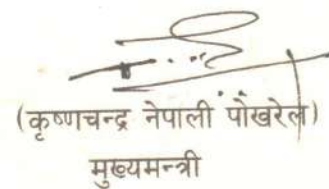 (कृष्णचन्द्र नेपाली पोखरेल)
मुख्यमन्त्री